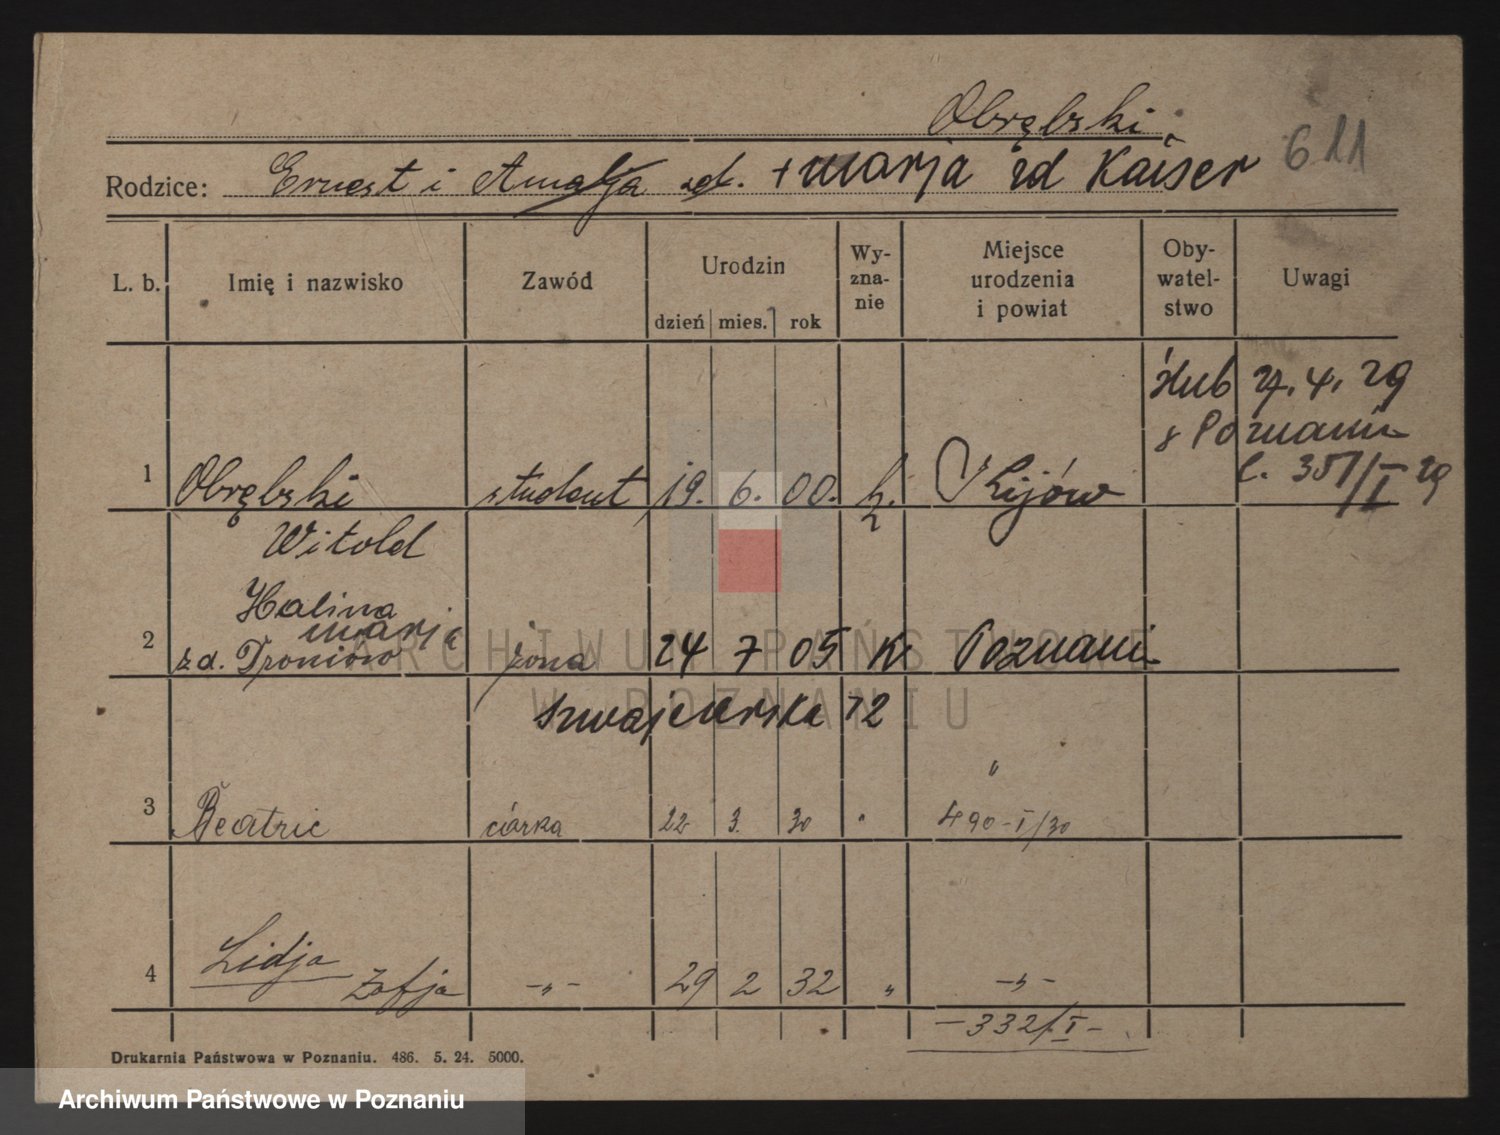 Obrębski
611
Rodzice: Ernest i Amalja zd. + Marja zd Kaiser
L. b. Imię i nazwisko Zawód Urodzin Wy-zna-nie Miejsce urodzenia i powiat Oby-watel-stwo Uwagi
dzień mies. rok
ślub 27. 4. 29
z Poznaniu
l. 351/I 29
1 Obrębski student 19. 6. 00. k. Kijów
Witold
Halina
Marja
2 z d. Troniów żona 24 7 05 K Poznań
Szwajcarska 12
"
3 Beatric córka 22 3. 30 " 490-I/30
Lidja
4 Zofja -"- 29 2 32 " -"-
-332/I-
Drukarnia Państwowa w Poznaniu. 486. 5. 24. 5000.
ARCHIWUM PAŃSTWOWE
W POZNANIU
Archiwum Państwowe w Poznaniu